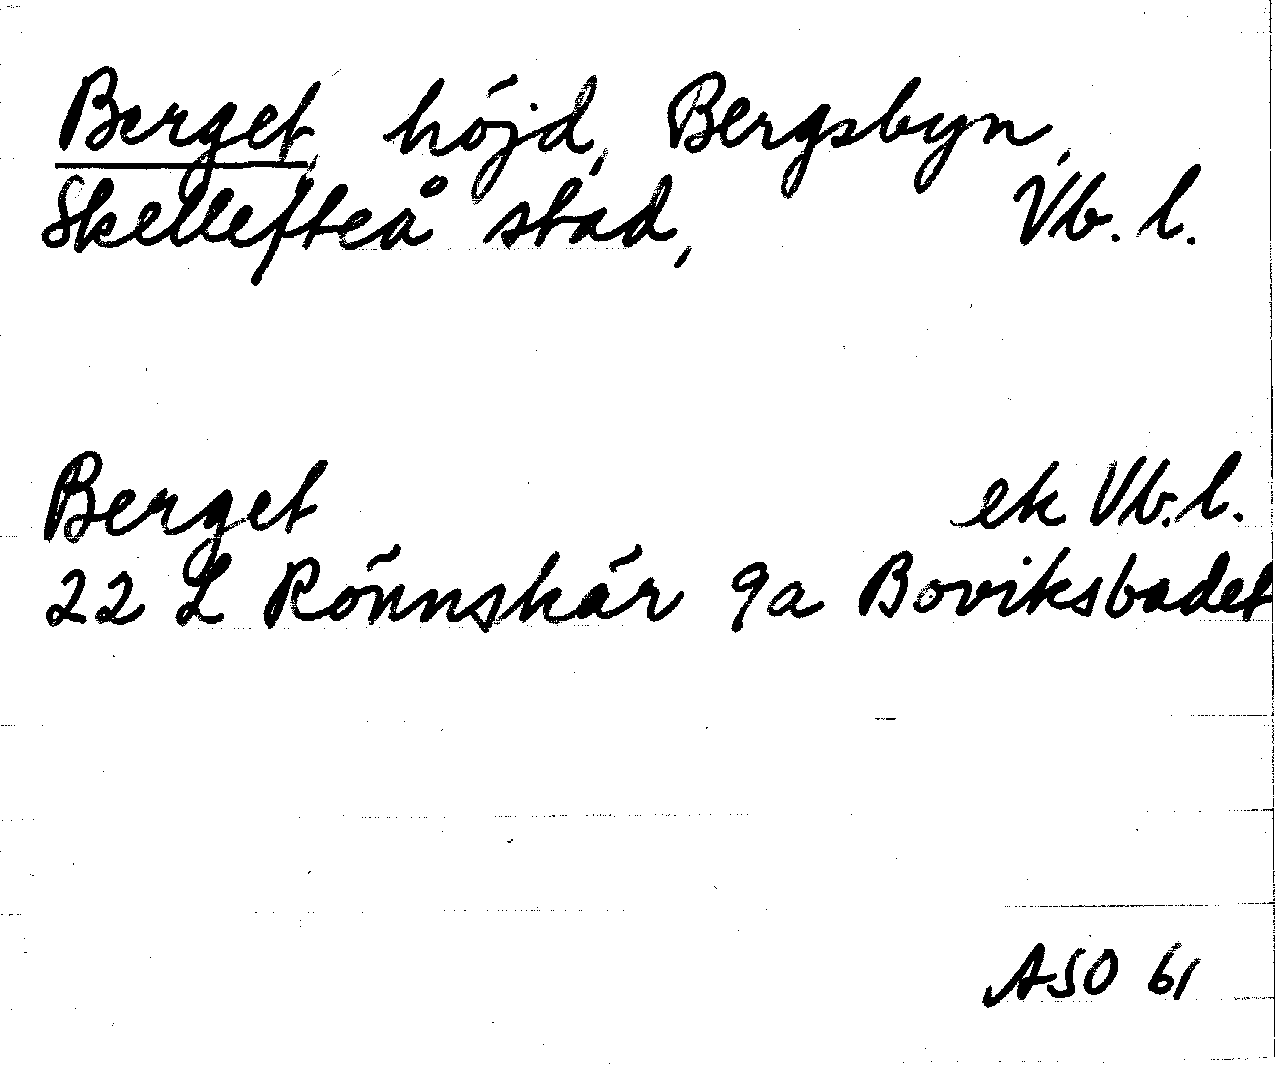 Berget, höjd, Bergsbyn,
Skellefteå stad, Vb. l.
Berget ek Vb. l.
22 L Rönnskär 9a Boviksbadet
ASO 61